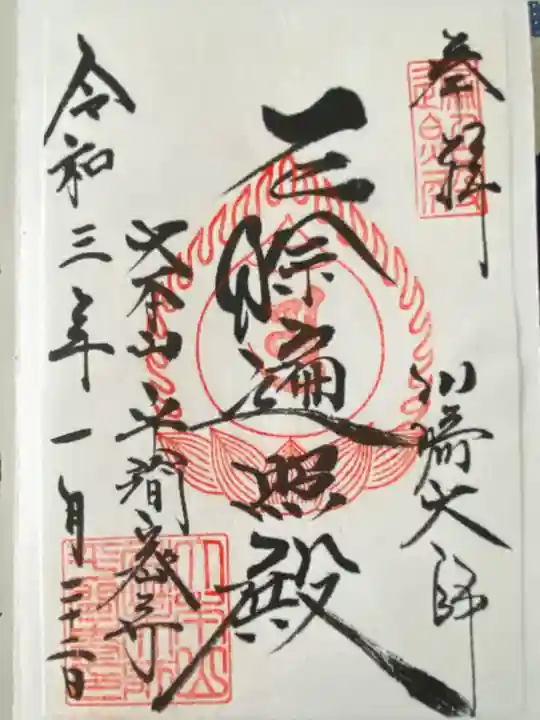 奉拝
川崎大師
厄除遍照殿
大本山 平間寺
令和三年一月二十二日